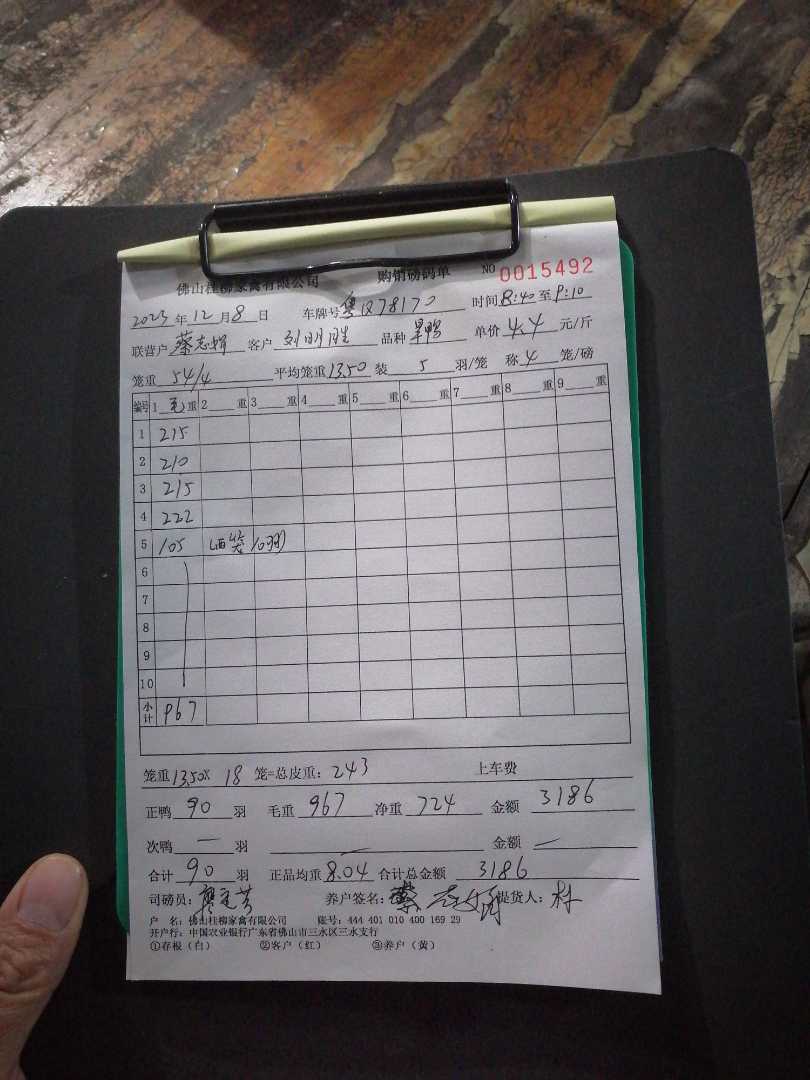 佛山桂柳家禽有限公司 购销磅码单 NO 0015492
2023年12月8日 车牌号 粤Q78170 时间8:40至9:10
联营户 蔡志娟 客户 刘明胜 品种 旱鸭 单价 4.4 元/斤
笼重 54/4 平均笼重13.50 装 5 羽/笼 称 4 笼/磅
编号 1 毛 重 2 重 3 重 4 重 5 重 6 重 7 重 8 重 9 重
1 215
2 210
3 215
4 222
5 105 (2笼10羽)
6
7
8
9
10
小计 967
笼重 13.50× 18 笼=总皮重: 243 上车费
正鸭 90 羽 毛重 967 净重 724 金额 3186
次鸭 — 羽 — 金额 —
合计 90 羽 正品均重 8.04 合计总金额 3186
司磅员: 养户签名: 蔡志娟 提货人: 林
户 名: 佛山桂柳家禽有限公司 账号: 444 401 010 400 169 29
开户行: 中国农业银行广东省佛山市三水区三水支行
①存根(白) ②客户(红) ③养户(黄)